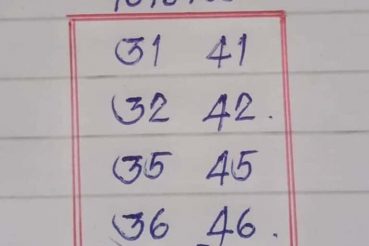 31 41
32 42.
35 45
36 46.